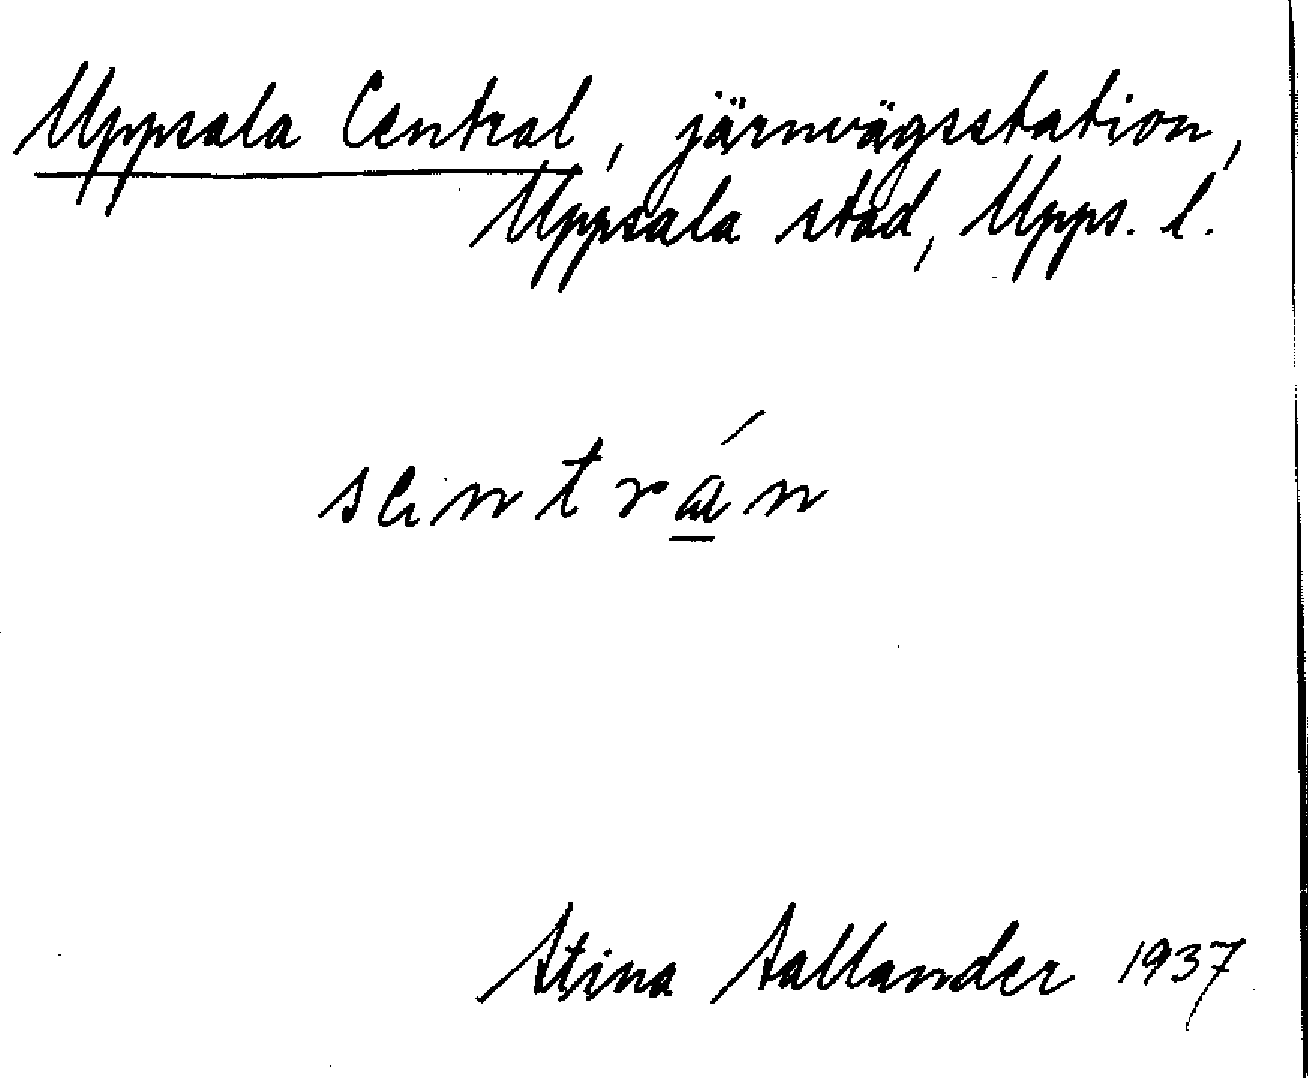 Uppsala Central, järnvägsstation,
Uppsala stad, Upps. l.
Stina Sallander 1937